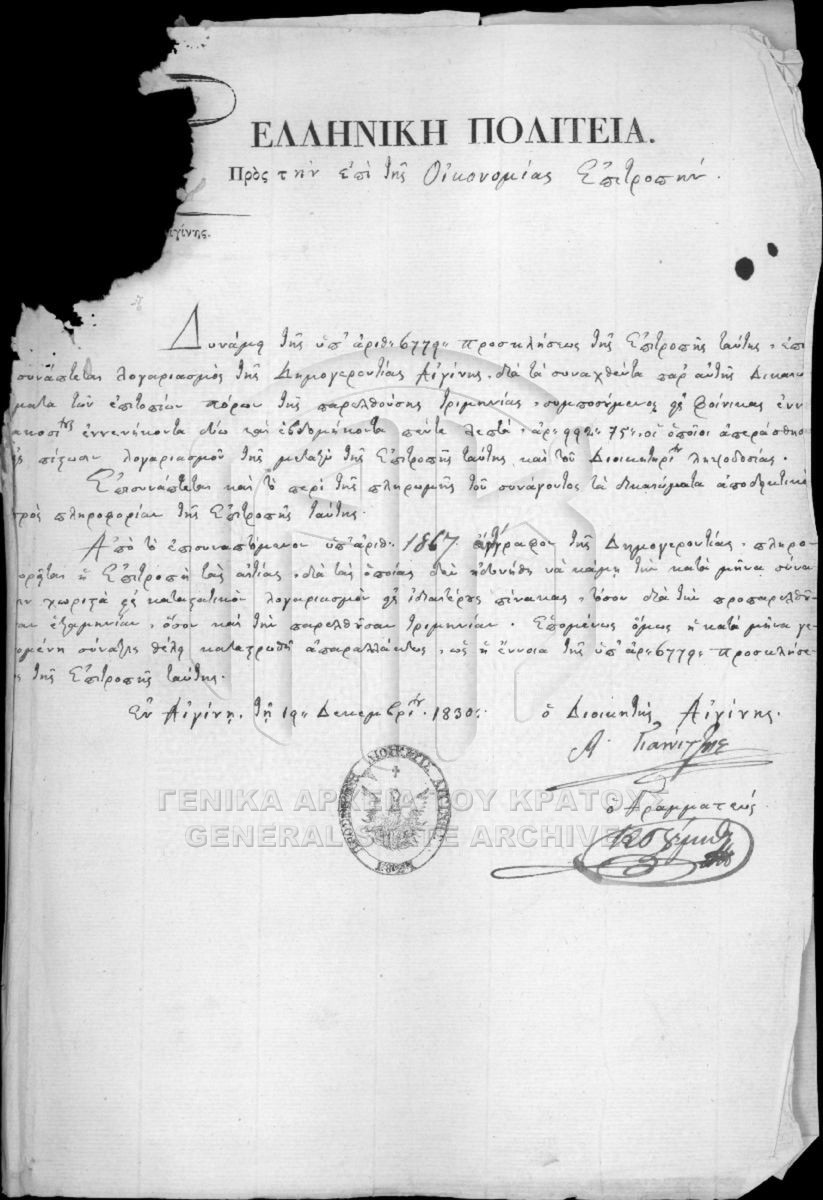 ΕΛΛΗΝΙΚΗ ΠΟΛΙΤΕΙΑ.
Πρὸς τὴν ἐπὶ τῆς Οἰκονομίας Ἐπιτροπήν.
ιγίνης.
Δυνάμει τῆς ὑπ' ἀριθ: 6779: προσκλήσεως τῆς Ἐπιτροπῆς ταύτης, ἐπι
συνάπτεται λογαριασμὸς τῆς Δημογεροντίας Αἰγίνης, διὰ τὰ συναχθέντα παρ' αὐτῆς Δικαιώ
ματα τῶν ἐπιτοπίων πόρων τῆς παρελθούσης τριμηνίας, συμποσούμενος εἰς φοίνικας ἐνν
ακοσίους ἐννενήκοντα δύω καὶ ἑβδομήκοντα πέντε λεπτά, ἀρ: 992: 75: οἱ ὁποῖοι ἀπεράσθησ
εἰς πίστωσιν λογαριασμοῦ τῆς μεταξὺ τῆς Ἐπιτροπῆς ταύτης, καὶ τοῦ Διοικητηρίου ληψοδοσίας.
Ἐπισυνάπτεται καὶ τὸ περὶ τῆς πληρωμῆς τοῦ συνάγοντος τὰ δικαιώματα ἀποδεικτικὸ
πρὸς πληροφορίαν τῆς Ἐπιτροπῆς ταύτης.
Ἀπὸ τὸ ἐπισυναπτόμενον ὑπ' ἀριθ: 1867. ἀντίγραφον τῆς Δημογεροντίας, πληρο
φορῆται ἡ Ἐπιτροπὴ τὰς αἰτίας, διὰ τὰς ὁποίας δὲν ἠδυνήθη νὰ κάμῃ τὴν κατὰ μῆνα σύνα
ιν χωριστὰ εἰς καταστατικὸν λογαριασμὸν εἰς ἰδιαιτέρους πίνακας, τόσον διὰ τὴν προπαρελθοῦ
σαν ἑξαμηνίαν, ὅσον καὶ τὴν παρελθοῦσαν τριμηνίαν. Ἑπομένως ὅμως ἡ κατὰ μῆνα γε
νομένη σύναξις θέλει καταστρωθῆ ἀπαραλλάκτως, ὡς ἡ ἔννοια τῆς ὑπ' ἀρ: 6779: προσκλήσε
ως τῆς Ἐπιτροπῆς ταύτης.
Ἐν Αἰγίνῃ, τῇ 19: Δεκεμβρίου 1830:. ὁ Διοικητὴς Αἰγίνης.
Α. Γιαννίτζης
ὁ Γραμματεύς
ΓΕΝΙΚΑ ΑΡΧΕΙΑ ΤΟΥ ΚΡΑΤΟΥΣ
GENERAL STATE ARCHIVES